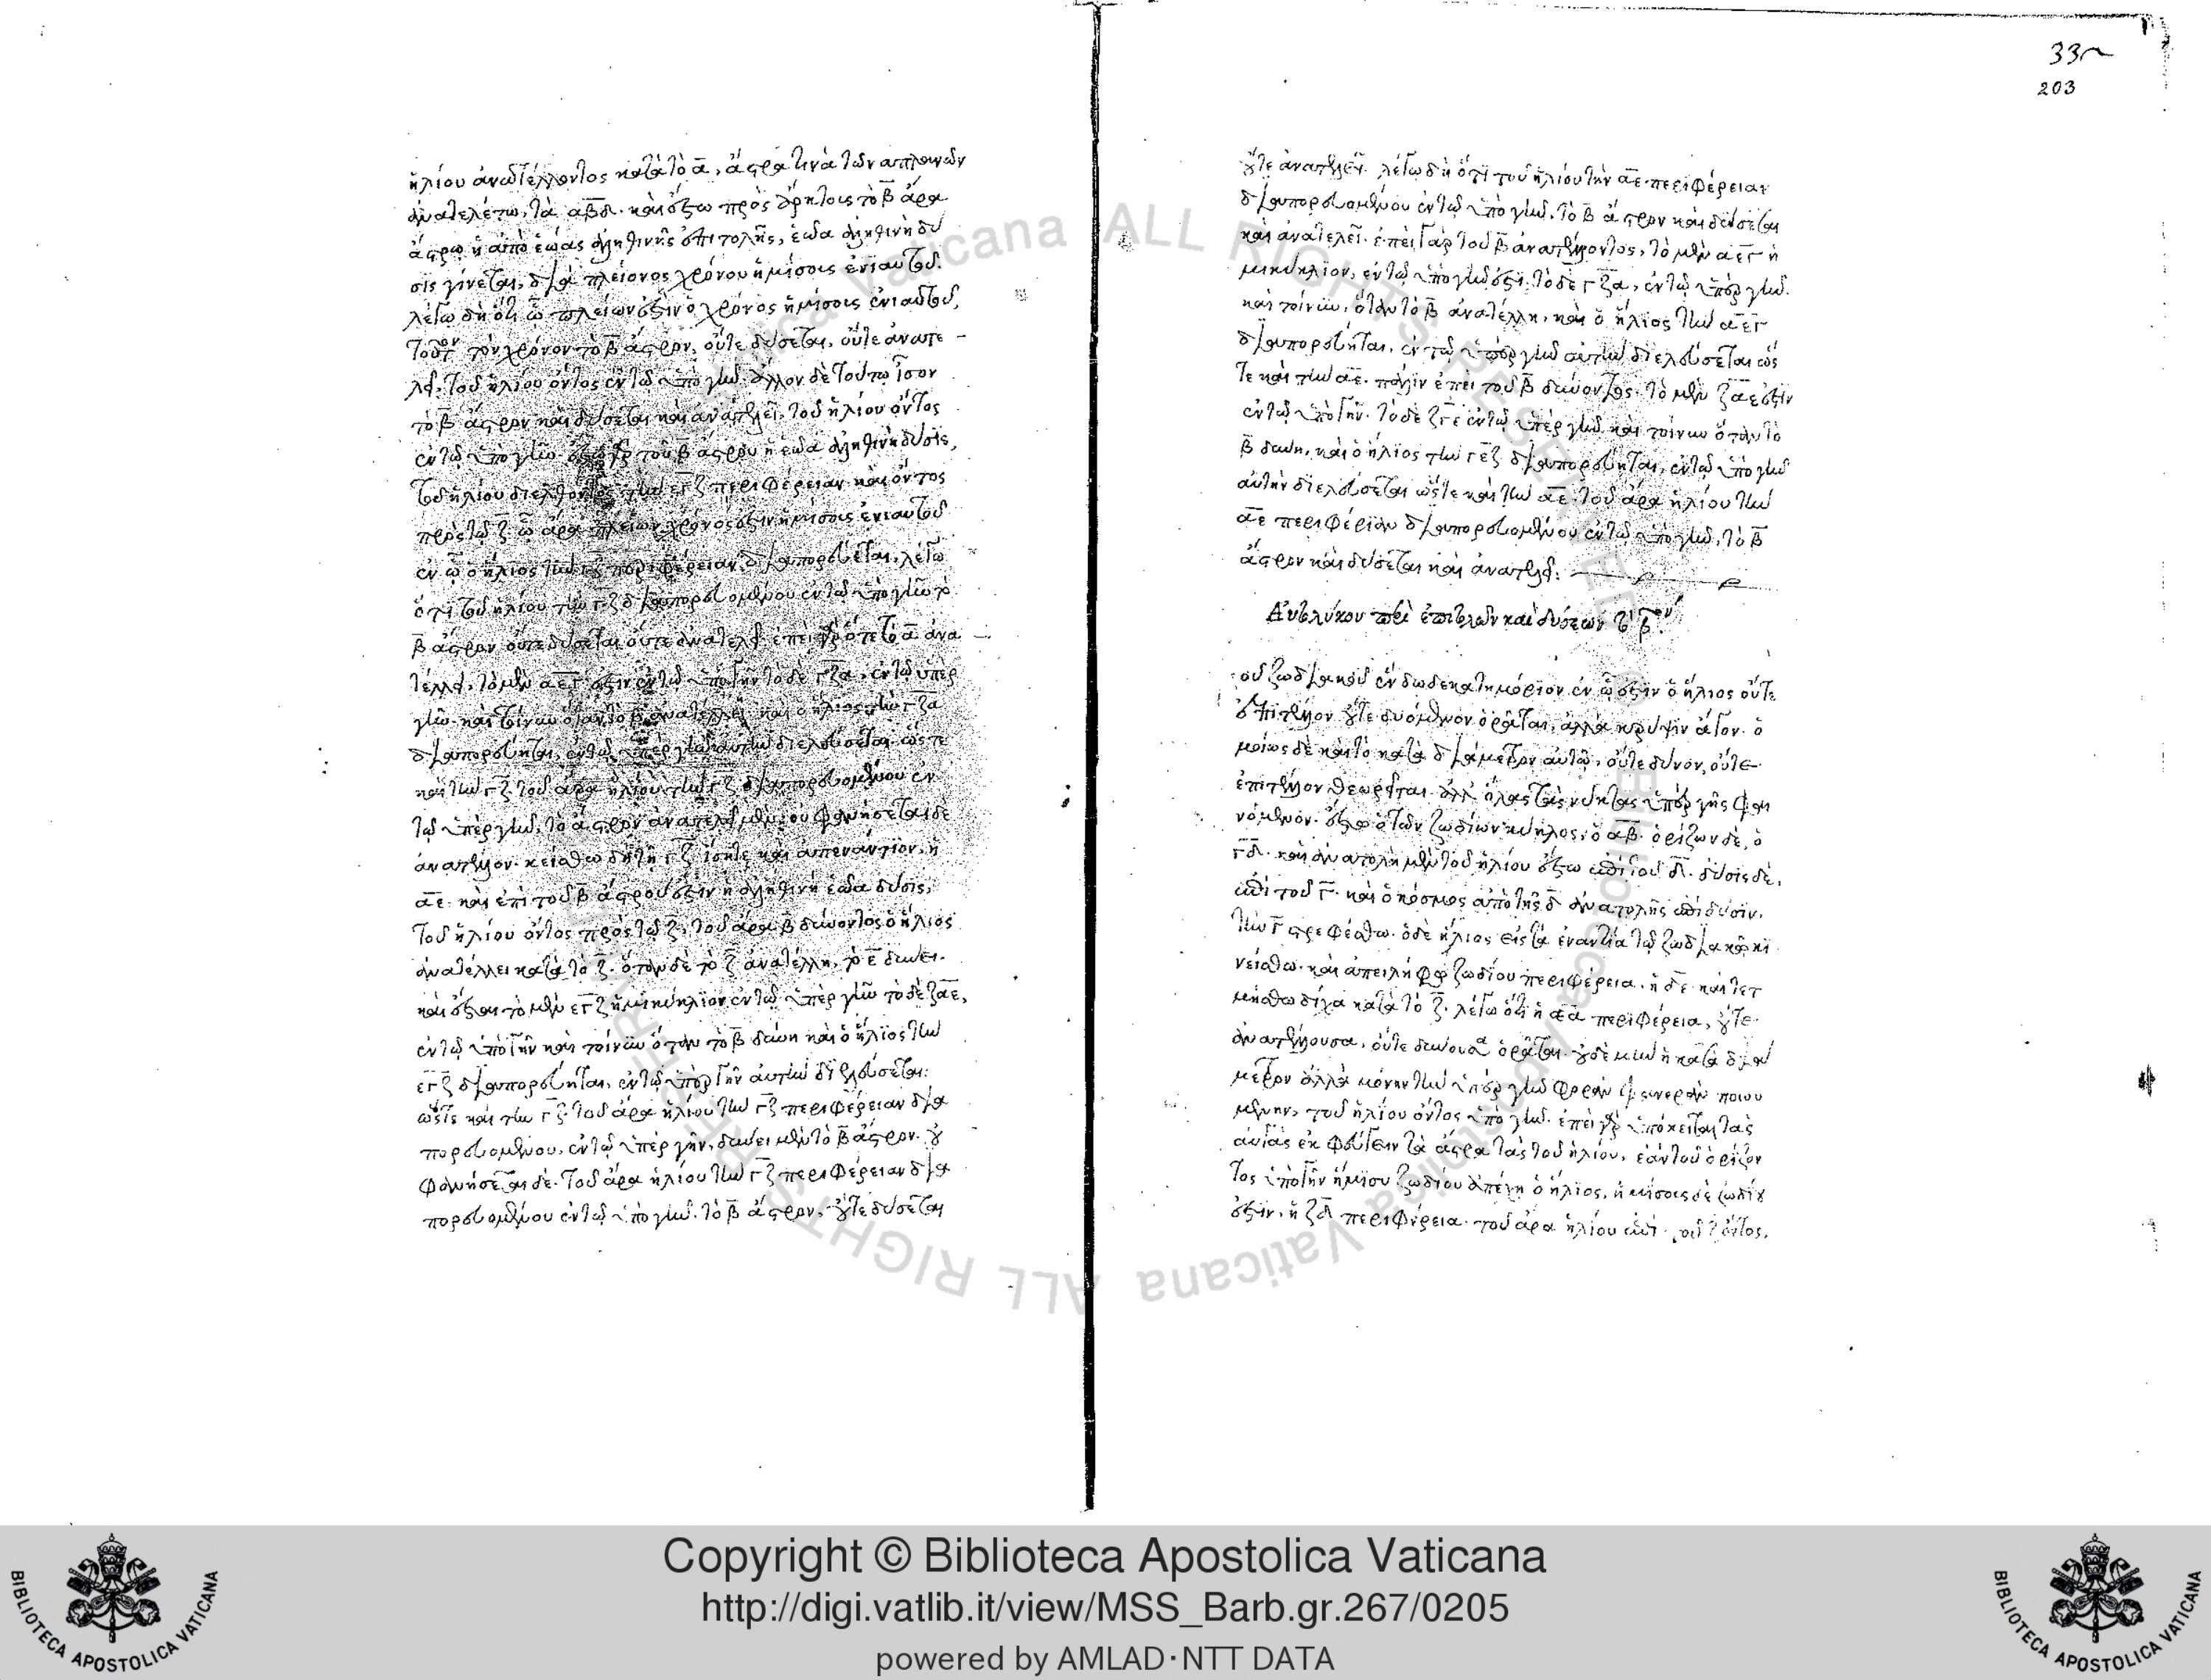 33
203
ἡλίου ἀνατέλλοντος κατὰ τὸ α, ἄστρα τινὰ τῶν ἀπλανῶν
ἀνατελέτω, τὰ αβδ. καὶ ἔστω πρὸς ἄρκτοις τὸ β ἄρα
ἄστρω ἡ ἀπὸ ἑώας ἀληθινῆς ἐπιτολῆς, ἑώα ἀληθινὴ δύ
σις γίνεται, διὰ πλείονος χρόνου ἡμίσους ἐνιαυτοῦ.
λέγω δὴ ὅτι ᾧ πλείων ἐστὶν ὁ χρόνος ἡμίσους ἐνιαυτοῦ,
τοῦτον τὸν χρόνον τὸ β ἄστρον, οὔτε δύσεται, οὔτε ἀνατε
λεῖ, τοῦ ἡλίου ὄντος ἐν τῷ ὑπὸ γῆν. ἄλλον δὲ τούτῳ ἴσον
τὸ β ἄστρον καὶ δύσεται καὶ ἀνατελεῖ, τοῦ ἡλίου ὄντος
ἐν τῷ ὑπὸ γῆν ἔστω γὰρ τοῦ β ἄστρου ἡ ἑώα ἀληθινὴ δύσις,
τοῦ ἡλίου διελθόντος τὴν εγζ περιφέρειαν καὶ ὄντος
πρὸς τῷ ζ ᾧ ἄρα πλείων χρόνος ἐστὶν ἡμίσους ἐνιαυτοῦ
ἐν ᾧ ὁ ἥλιος τὴν γζ περιφέρειαν διαπορεύεται, λέγω
ὅτι τοῦ ἡλίου τὴν γζ διαπορευομένου ἐν τῷ ὑπὸ γῆν τὸ
β ἄστρον οὔτε δύσεται οὔτε ἀνατελεῖ ἐπεὶ γὰρ ὅτε τὸ α ἀνα
τέλλει, τὸ μὲν αεγ ἐστὶν ἐν τῷ ὑπὸ γῆν τὸ δὲ γζα, ἐν τῷ ὑπὲρ
γῆν. καὶ τοίνυν ὅταν τὸ β ἀνατέλλῃ καὶ ὁ ἥλιος τὴν γζα
διαπορεύηται, ἐν τῷ ὑπὲρ γῆν αὐτὴν διελεύσεται ὥστε
καὶ τὴν γζ τοῦ ἄρα ἡλίου τὴν γζ διαπορευομένου ἐν
τῷ ὑπὲρ γῆν, τὸ ἄστρον ἀνατελεῖ μὲν, οὐ φανήσεται δὲ
ἀνατέλλον. κείσθω δὴ τῇ γζ ἴση τε καὶ ἀπεναντίον, ἡ
αε. καὶ ἐπὶ τοῦ β ἄστρου ἐστὶν ἡ ἀληθινὴ ἑώα δύσις,
τοῦ ἡλίου ὄντος πρὸς τῷ ζ, τοῦ ἄρα β δύνοντος ὁ ἥλιος
ἀνατέλλει κατὰ τὸ ζ. ὅταν δὲ τὸ ζ ἀνατέλλῃ, τὸ ε δύνει.
καὶ ἔσται τὸ μὲν εγζ ἡμικύκλιον ἐν τῷ ὑπὲρ γῆν τὸ δὲ ζαε,
ἐν τῷ ὑπὸ γῆν καὶ τοίνυν ὅταν τὸ β δύνῃ καὶ ὁ ἥλιος τὴν
εγζ διαπορεύηται, ἐν τῷ ὑπὲρ γῆν αὐτὴν διελεύσεται.
ὥστε καὶ τὴν γζ. τοῦ ἄρα ἡλίου τὴν γζ περιφέρειαν δια
πορευομένου, ἐν τῷ ὑπὲρ γῆν, δύνει μὲν τὸ β ἄστρον. οὐ
φανήσεται δὲ. τοῦ ἄρα ἡλίου τὴν γζ περιφέρειαν δια
πορευομένου ἐν τῷ ὑπὸ γῆν. τὸ β ἄστρον, οὔτε δύσεται
οὔτε ἀνατελεῖ. λέγω δὴ ὅτι τοῦ ἡλίου τὴν αε περιφέρειαν
διαπορευομένου ἐν τῷ ὑπὸ γῆν, τὸ β ἄστρον καὶ δύσεται
καὶ ἀνατελεῖ. ἐπεὶ γὰρ τοῦ β ἀνατέλλοντος, τὸ μὲν αεγ ἡ
μικύκλιον, ἐν τῷ ὑπὸ γῆν ἐστι, τὸ δὲ γζα, ἐν τῷ ὑπὲρ γῆν.
καὶ τοίνυν, ὅταν τὸ β ἀνατέλλῃ, καὶ ὁ ἥλιος τὴν αεγ
διαπορεύηται, ἐν τῷ ὑπὲρ γῆν αὐτὴν διελεύσεται ὥσ
τε καὶ τὴν αε. πάλιν ἐπεὶ τοῦ β δύνοντος. τὸ μὲν ζαε ἐστὶν
ἐν τῷ ὑπὸ γῆν. τὸ δὲ ζγε ἐν τῷ ὑπὲρ γῆν καὶ τοίνυν ὅταν τὸ
β δύνῃ, καὶ ὁ ἥλιος τὴν γεζ διαπορεύηται, ἐν τῷ ὑπὸ γῆν
αὐτὴν διελεύσεται ὥστε καὶ τὴν αε. τοῦ ἄρα ἡλίου τὴν
αε περιφέρειαν διαπορευομένου ἐν τῷ ὑπὸ γῆν, τὸ β
ἄστρον καὶ δύσεται καὶ ἀνατελεῖ:
Αὐτολύκου περὶ ἐπιτολῶν καὶ δύσεων
οῦ ζωδιακοῦ ἓν δωδεκατημόριον ἐν ᾧ ἐστὶν ὁ ἥλιος οὔτε
ἐπιτέλλον οὔτε δυόμενον ὁρᾶται, ἀλλὰ κρύψιν ἄγον. ὁ
μοίως δὲ καὶ τὸ κατὰ διάμετρον αὐτῷ, οὔτε δῦνον, οὔτε
ἐπιτέλλον θεωρεῖται ἀλλ' ὅλας τὰς νύκτας ὑπὲρ γῆς φαι
νόμενον. ἔστω ὁ τῶν ζωδίων κύκλος, ὁ αβ. ὁρίζων δὲ, ὁ
γδ. καὶ ἀνατολὴ μὲν τοῦ ἡλίου ἔστω ἐπὶ τοῦ δ. δύσις δὲ,
ἐπὶ τοῦ γ. καὶ ὁ κόσμος ἀπὸ τῆς δ ἀνατολῆς ἐπὶ δύσιν.
τὴν γ στρεφέσθω. ὁ δὲ ἥλιος εἰς τὰ ἐναντία τῷ ζωδιακῷ κι
νείσθω. καὶ ἀπειλήφθω ζωδίου περιφέρεια. ἡ δε καὶ τετ
μήσθω δίχα κατὰ τὸ ζ. λέγω ὅτι ἡ εδ περιφέρεια, οὔτε
ἀνατέλλουσα, οὔτε δύνουσα ὁρᾶται. οὐδὲ μὴν ἡ κατὰ διά
μετρον ἀλλὰ μόνην τὴν ὑπὲρ γῆν φορὰν φανερὰν ποιου
μένην, τοῦ ἡλίου ὄντος ὑπὸ γῆν. ἐπεὶ γὰρ ὑπόκειται τὰς
αὐγὰς ἐκφεύγειν τὰ ἄστρα τὰς τοῦ ἡλίου, ἐὰν τοῦ ὁρίζον
τος ὑπὸ γῆν ἥμισυ ζωδίου ἀπέχῃ ὁ ἥλιος, ἡμίσους δὲ ζωδίου
ἐστὶν, ἡ ζδ περιφέρεια. τοῦ ἄρα ἡλίου ἐπὶ τοῦ ζ ὄντος,
Copyright © Biblioteca Apostolica Vaticana
http://digi.vatlib.it/view/MSS_Barb.gr.267/0205
powered by AMLAD·NTT DATA
BIBLIOTECA APOSTOLICA VATICANA
BIBLIOTECA APOSTOLICA VATICANA